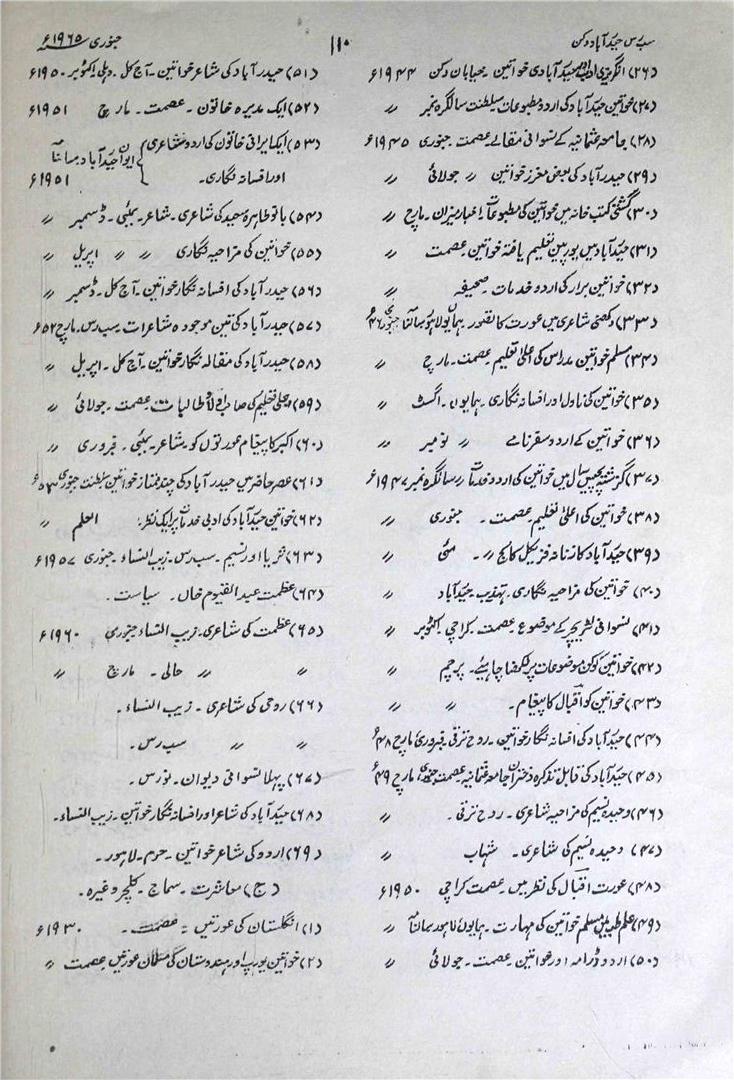 سب رس حیدرآباد دکن
۱۱۰
جنوری ۱۹۶۵ء
(۲۶) انگریزی ادب اور حیدرآبادی خواتین۔ خیابان دکن ۱۹۴۴ء
(۲۷) خواتین حیدرآباد کی اردو مطبوعات۔ سلطنت سالگرہ نمبر 〃
(۲۸) جامعہ عثمانیہ کے نسوانی مقالے عصمت۔ جنوری ۱۹۴۵ء
(۲۹) حیدرآباد کی بعض معزز خواتین 〃 جولائی 〃
(۳۰) گشتی کتب خانہ میں خواتین کی مطبوعات۔ اخبار میزان۔ مارچ 〃
(۳۱) حیدرآباد میں یورپین تعلیم یافتہ خواتین۔ عصمت 〃
(۳۲) خواتین برار کی اردو خدمات۔ صحیفہ 〃
(۳۳) دکھنی شاعری میں عورت کا تصور۔ ہمایوں لاہور سالنامہ جنوری ۴۶ء
(۳۴) مسلم خواتین مدراس کی اعلیٰ تعلیم۔ عصمت۔ مارچ 〃
(۳۵) خواتین کی ناول اور افسانہ نگاری۔ ہمایوں۔ اگست 〃
(۳۶) خواتین کے اردو سفرنامے 〃 نومبر 〃
(۳۷) گزشتہ پچیس سال میں خواتین کی اردو خدمات (سالگرہ نمبر ۱۹۴۷ء
(۳۸) خواتین کی اعلیٰ تعلیم۔ عصمت۔ جنوری 〃
(۳۹) حیدرآباد کا زنانہ فزیکل کالج 〃۔ مئی 〃
(۴۰) خواتین کی مزاحیہ نگاری۔ تہذیب حیدرآباد 〃
(۴۱) نسوانی لٹریچر کے موضوع عصمت۔ کراچی اکٹوبر 〃
(۴۲) خواتین کو کن موضوعات پر لکھنا چاہیئے۔ پرچم 〃
(۴۳) خواتین کو اقبال کا پیغام۔ 〃 〃
(۴۴) حیدرآباد کی افسانہ نگار خواتین۔ روح ترقی۔ فبروری مارچ ۴۸ء
(۴۵) حیدرآباد کی قابل تذکرہ دختران جامعہ عثمانیہ عصمت جنوری مارچ ۴۹ء
(۴۶) وحیدہ نسیم کی مزاحیہ شاعری۔ روح ترقی۔ 〃
(۴۷) وحیدہ نسیم کی شاعری۔ شہاب 〃
(۴۸) عورت اقبال کی نظر میں۔ عصمت کراچی ۱۹۵۰ء
(۴۹) علم طب میں مسلم خواتین کی مہارت۔ ہمایوں لاہور سالنامہ 〃
(۵۰) اردو ڈرامہ اور خواتین۔ عصمت۔ جولائی 〃
(۵۱) حیدرآباد کی شاعر خواتین۔ آج کل۔ دہلی اکٹوبر ۱۹۵۰ء
(۵۲) ایک مدیرہ خاتون۔ عصمت۔ مارچ ۱۹۵۱ء
(۵۳) ایک ایرانی خاتون کی اردو شاعری اور افسانہ نگاری۔ } ایوان حیدرآباد سالنامہ ۱۹۵۱ء
(۵۴) بانو طاہرہ سعید کی شاعری۔ شاعر۔ بمبئی۔ ڈسمبر 〃
(۵۵) خواتین کی مزاحیہ نگاری 〃 〃 اپریل 〃
(۵۶) حیدرآباد کی افسانہ نگار خواتین۔ آج کل۔ ڈسمبر 〃
(۵۷) حیدرآباد کی تین موجودہ شاعرات سب رس۔ مارچ ۵۲ء
(۵۸) حیدرآباد کی مقالہ نگار خواتین۔ آج کل۔ اپریل 〃
(۵۹) اعلیٰ تعلیم کی طالبات عصمت۔ جولائی 〃
(۶۰) اکبر کا پیغام عورتوں کو شاعر۔ بمبئی۔ فبروری 〃
(۶۱) عصر حاضر میں حیدرآباد کی چند ممتاز خواتین سلطنت جنوری ۵۳ء
(۶۲) خواتین حیدرآباد کی ادبی خدمات پر ایک نظر۔ العلم 〃
(۶۳) ثریا اور نسیم۔ سب رس۔ زیب النساء۔ جنوری ۱۹۵۷ء
(۶۴) عظمت عبدالقیوم خاں۔ سیاست۔
(۶۵) عظمت کی شاعری۔ زیب النساء جنوری ۱۹۶۰ء
〃 〃 حالی۔ مارچ 〃
(۶۶) روحی کی شاعری۔ زیب النساء۔
〃 〃 سب رس۔
(۶۷) پہلا نسوانی دیوان۔ نورس۔
(۶۸) حیدرآباد کی شاعر اور افسانہ نگار خواتین۔ زیب النساء۔
(۶۹) اردو کی شاعر خواتین۔ حرم۔ لاہور۔
(ج) معاشرت۔ سماج۔ کلچر وغیرہ۔
(۱) انگلستان کی عورتیں۔ عصمت۔ ۱۹۳۰ء
(۲) خواتین یورپ اور ہندوستان کی مسلمان عورتیں عصمت 〃